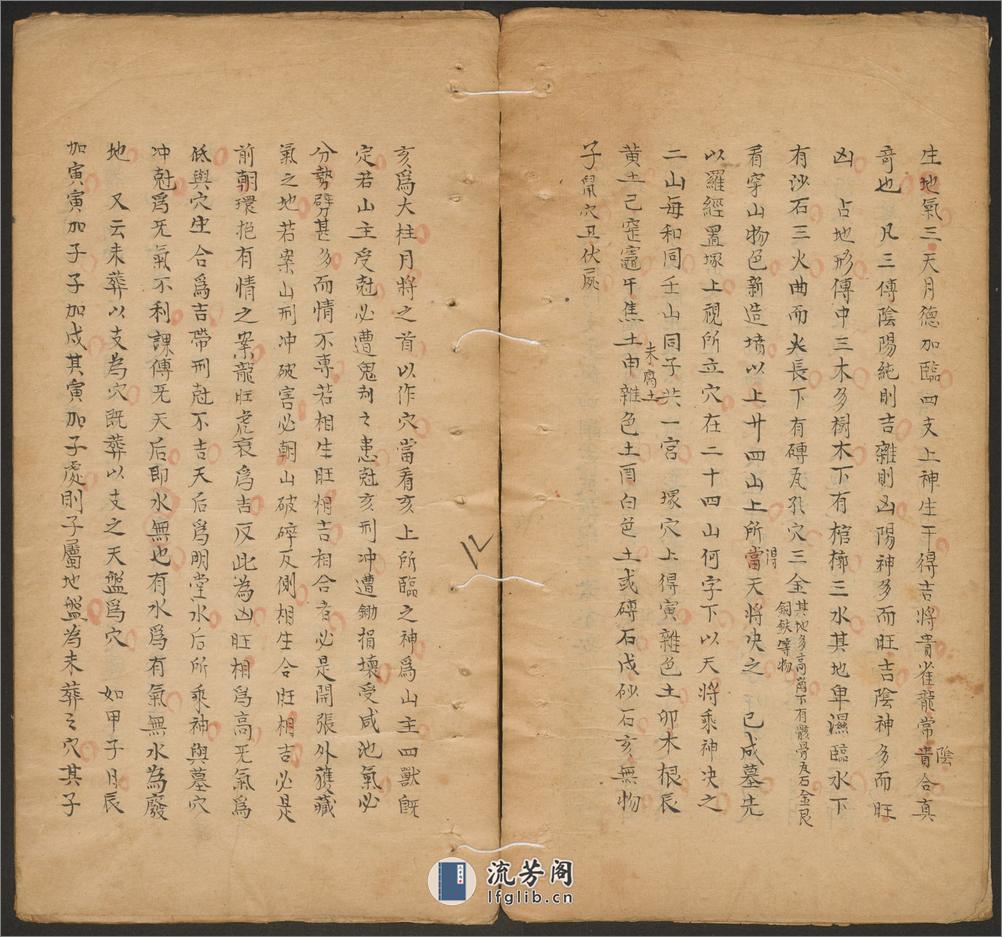 生地氣三天月德加臨四支上神生干得吉將貴雀龍常陰貴合真
竒也　凡三傳陰陽純則吉雜則凶陽神多而旺吉陰神多而旺
凶　占地形傳中三木多樹木下有棺槨三水其地卑濕臨水下
有沙石三火曲而火長下有磚瓦孔穴三金其地多高崗下有骸骨瓦石金艮
銅鉄等物
看穿山物色新造墳以上廿四山上所當得天將决之　已成墓先
以羅經置塚上視所立穴在二十四山何字下以天將乘神决之
二山每和同壬山同子共一宮　塚穴上得寅雜色土卯木根辰
黃土己窑竈午焦土未腐土申雜色土酉白色土或磚石戌砂石亥無物
子鼠穴丑伏屍
亥爲大柱月將之首以作穴當看亥上所臨之神爲山主四獸旣
定若山主受尅必遭鬼刦之患尅亥刑冲遭鋤損壞受咸池氣必
分勢劈甚多而情不專若相生旺相吉相合者必是開張外獲藏
氣之地若案山刑冲破害必朝山破碎反側相生合旺相吉必是
前朝環抱有情之案龍旺虎衰爲吉反此為凶旺相爲高旡氣爲
低與穴生合爲吉帶刑尅不吉天后爲明堂水后所乘神與墓穴
冲尅爲旡氣不利課傳旡天后即水無也有水爲有氣無水為廢
地　又云未葬以支為穴旣葬以支之天盤爲穴　如甲子月辰
加寅寅加子子加戌其寅加子處則子屬地盤為未葬之穴其子
12
流芳阁
lfglib.cn